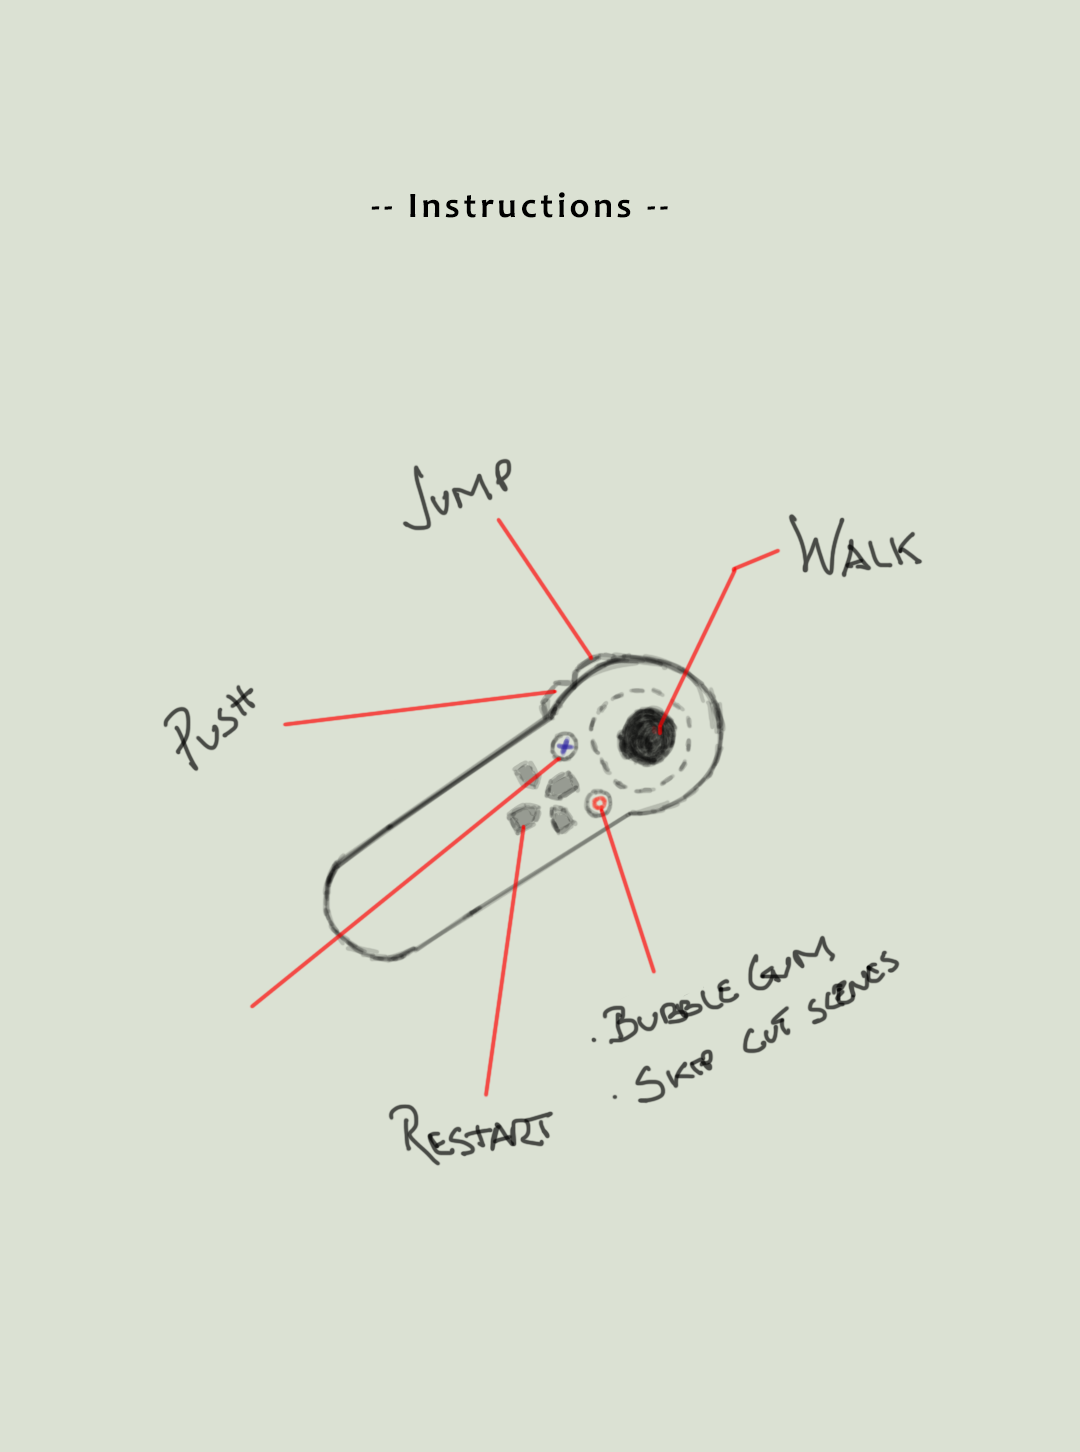 -- Instructions --
JUMP
WALK
PUSH
. BUBBLE GUM
. SKIP CUT SCENES
RESTART